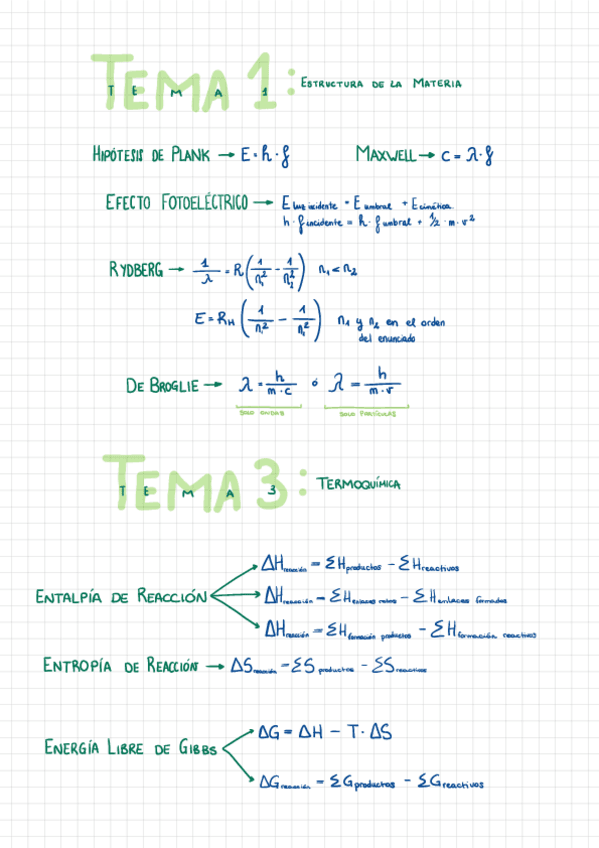 TEMA 1: ESTRUCTURA DE LA MATERIA
T E M A 1
HIPÓTESIS DE PLANK → E = h · f
MAXWELL → C = λ · f
EFECTO FOTOELÉCTRICO → E luz incidente = E umbral + E cinética
h · f incidente = h · f umbral + 1/2 · m · v²
RYDBERG → 1/λ = R(1/n₁² - 1/n₂²) n₁ < n₂
E = R_H (1/n₁² - 1/n₂²) n₁ y n₂ en el orden
del enunciado
DE BROGLIE → λ = h/m·c ó λ = h/m·v
SOLO ONDAS SOLO PARTÍCULAS
TEMA 3: TERMOQUÍMICA
T E M A 3
ΔH reacción = ΣH productos - ΣH reactivos
ENTALPÍA DE REACCIÓN → ΔH reacción = ΣH enlaces rotos - ΣH enlaces formados
ΔH reacción = ΣH formación productos - ΣH formación reactivos
ENTROPÍA DE REACCIÓN → ΔS reacción = ΣS productos - ΣS reactivos
ΔG = ΔH - T · ΔS
ENERGÍA LIBRE DE GIBBS
ΔG reacción = ΣG productos - ΣG reactivos